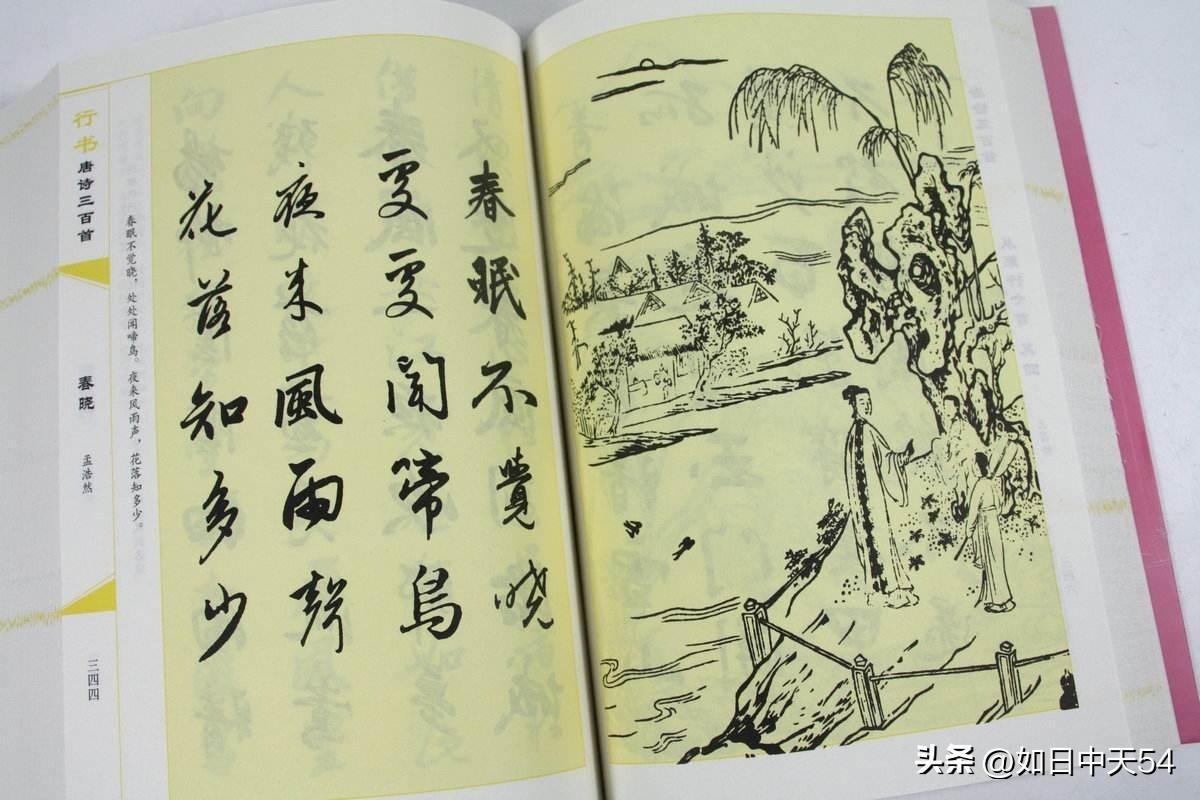 春眠不覺晓
處處聞啼鳥
夜来風雨聲
花落知多少
春眠不觉晓，处处闻啼鸟。夜来风雨声，花落知多少。
行书
唐诗三百首
春晓
孟浩然
三四四
头条 @如日中天54